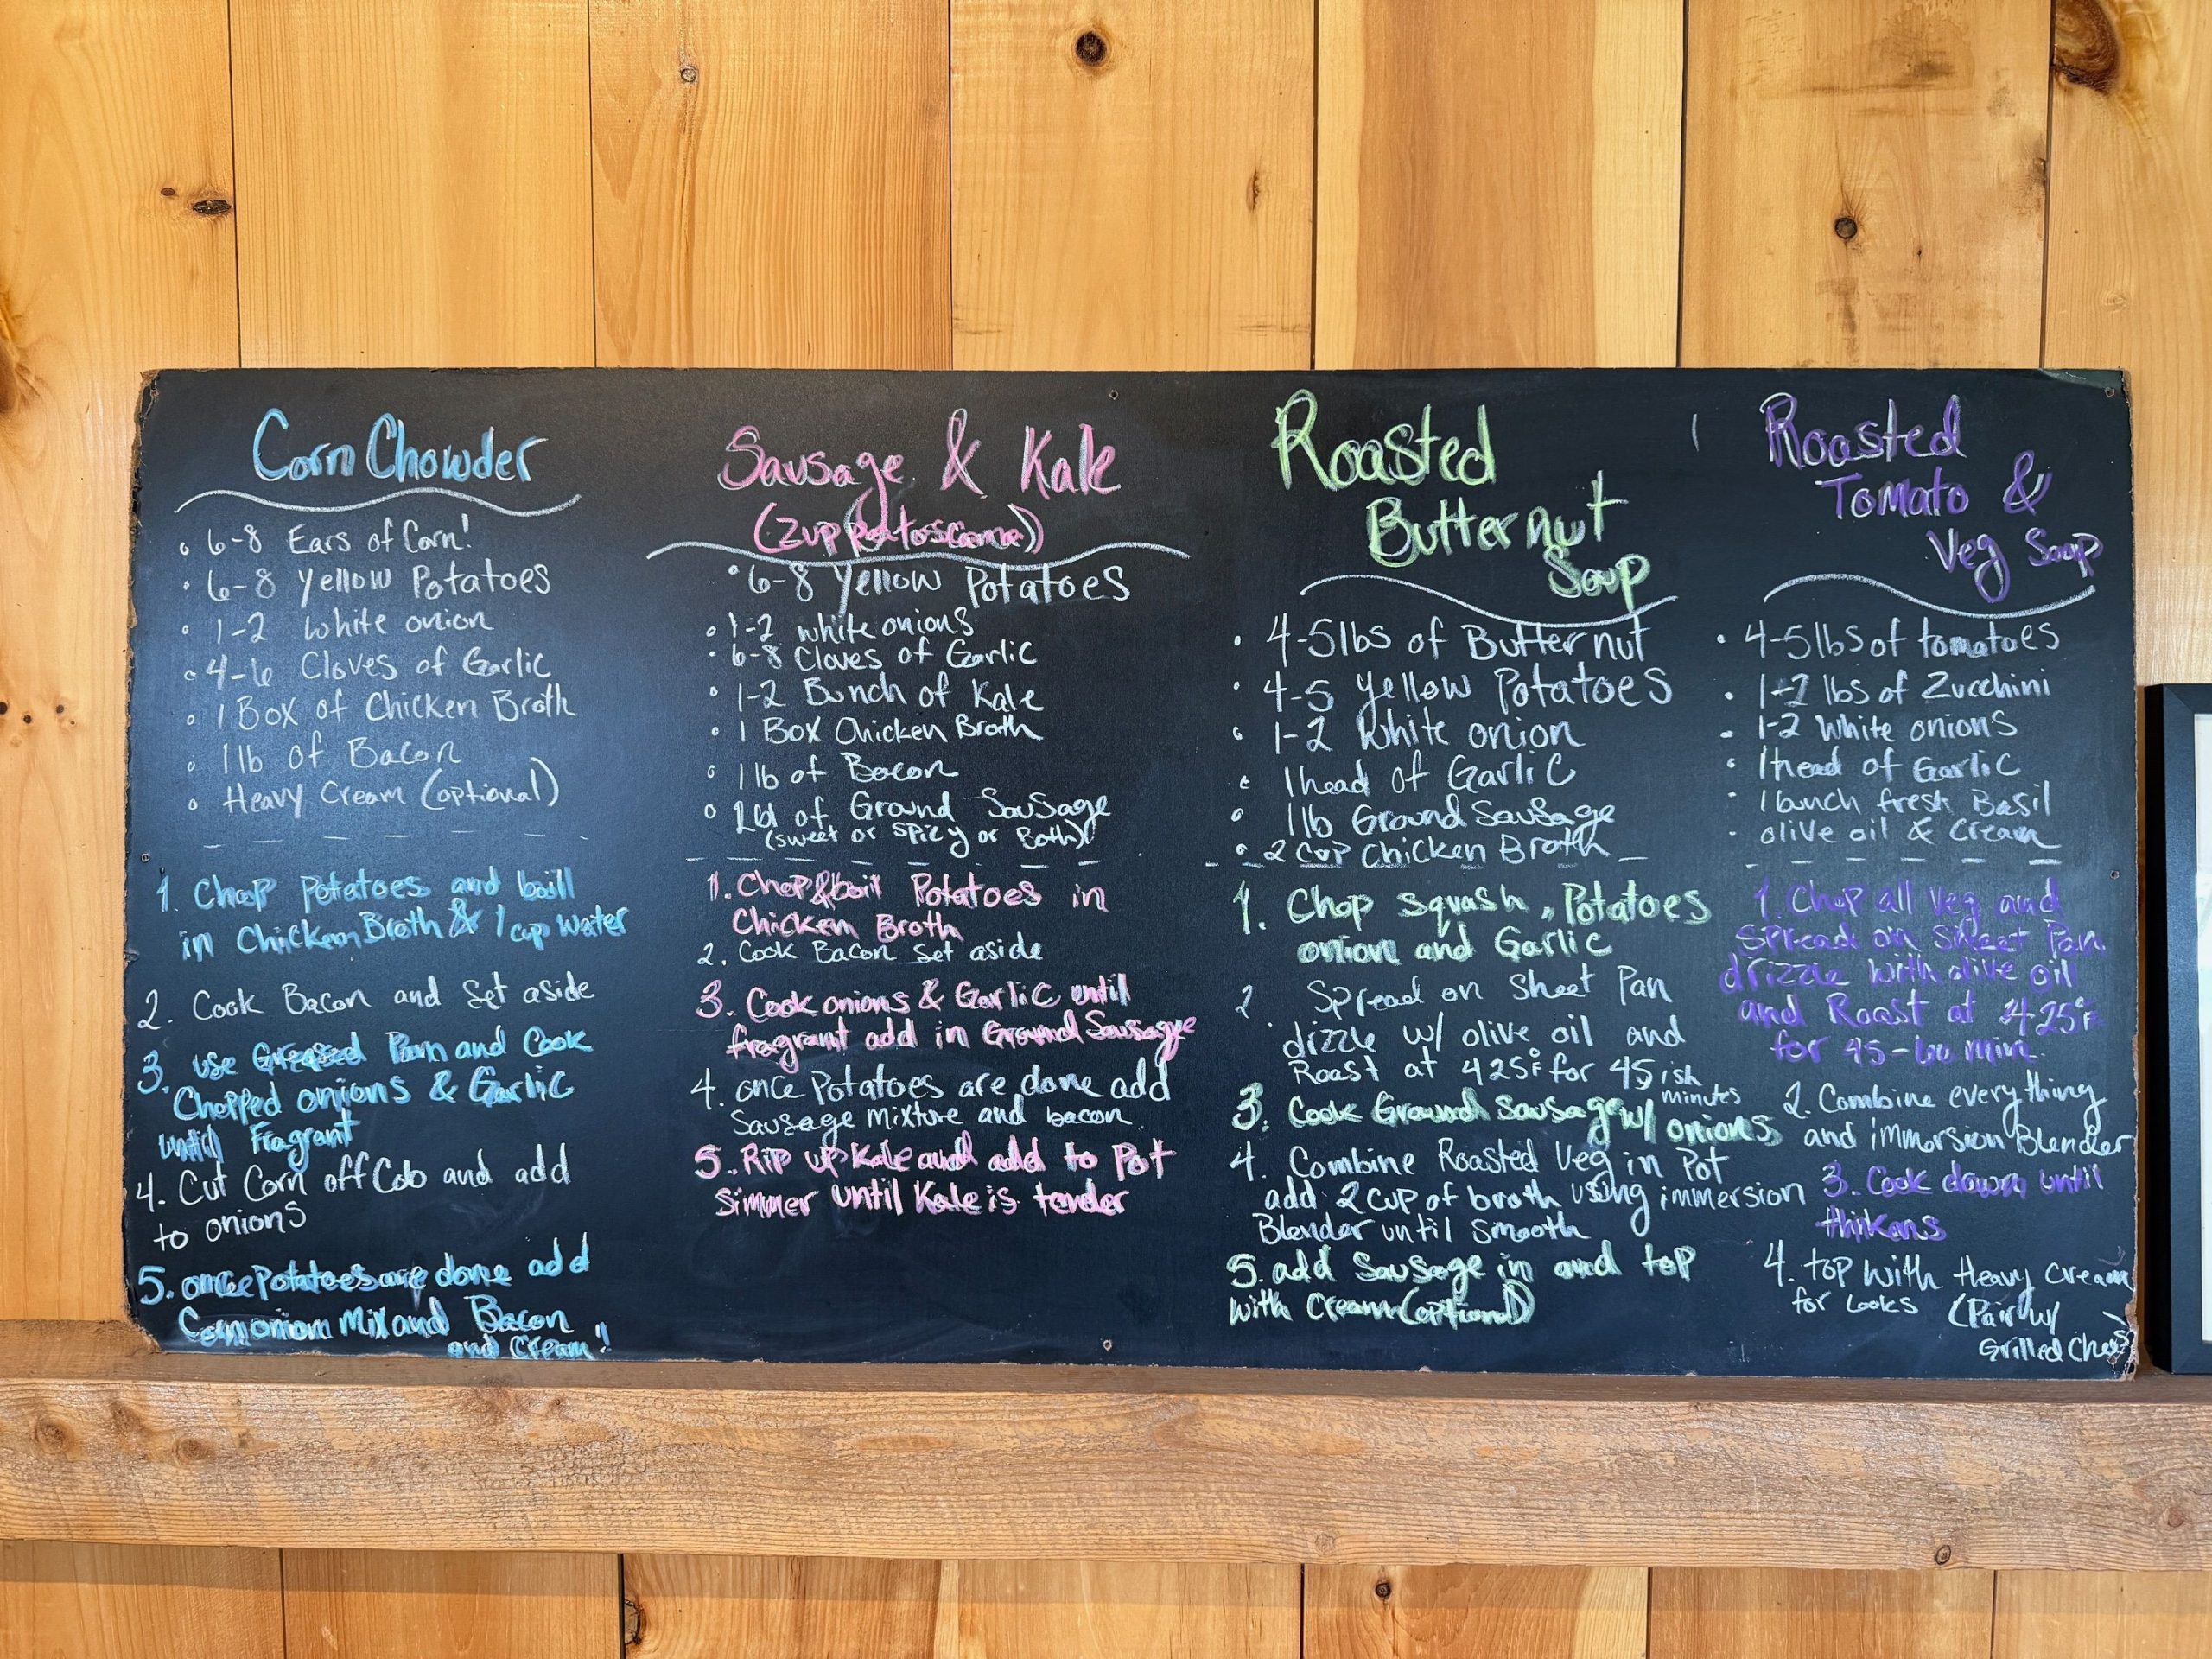 Corn Chowder
• 6-8 Ears of Corn!
• 6-8 Yellow Potatoes
• 1-2 White onion
• 4-6 Cloves of Garlic
• 1 Box of Chicken Broth
• 1 lb of Bacon
• Heavy Cream (optional)
1. Chop Potatoes and boill
in Chicken Broth & 1 cup water
2. Cook Bacon and Set aside
3. use Greased Pan and Cook
Chopped onions & Garlic
until Fragrant
4. Cut Corn off Cob and add
to onions
5. once Potatoes are done add
Corn onion Mix and Bacon
and Cream!
Sausage & Kale
(Zuppa toscana)
• 6-8 Yellow Potatoes
• 1-2 white onions
• 6-8 Cloves of Garlic
• 1-2 Bunch of Kale
• 1 Box Chicken Broth
• 1 lb of Bacon
• of Ground Sausage
(sweet or spicy or Both)
1. Chop & boil Potatoes in
Chicken Broth
2. Cook Bacon Set aside
3. Cook onions & Garlic until
fragrant add in Ground Sausage
4. once Potatoes are done add
Sausage mixture and bacon
5. Rip up Kale and add to Pot
Simmer until Kale is tender
Roasted
Butternut
Soup
• 4-5 lbs of Butternut
• 4-5 Yellow Potatoes
• 1-2 White onion
• 1 head of Garlic
• 1 lb Ground Sausage
• 2 cup Chicken Broth
1. Chop squash, Potatoes
onion and Garlic
2. Spread on Sheet Pan
dizzle w/ olive oil and
Roast at 425°F for 45 ish
minutes
3. Cook Ground Sausage w/ onions
4. Combine Roasted Veg in Pot
add 2 cup of broth using immersion
Blender until Smooth
5. add Sausage in and top
with Cream (optional)
Roasted
Tomato &
Veg Soup
• 4-5 lbs of tomatoes
• 1-2 lbs of Zucchini
• 1-2 White onions
• 1 head of Garlic
• 1 bunch fresh Basil
• olive oil & Cream
1. Chop all Veg and
Spread on Sheet Pan
drizzle with olive oil
and Roast at 425°F
for 45-60 min.
2. Combine everything
and immorsion Blender
3. Cook down until
thikens
4. top with Heavy cream
for Looks (Pair w/
Grilled Chees